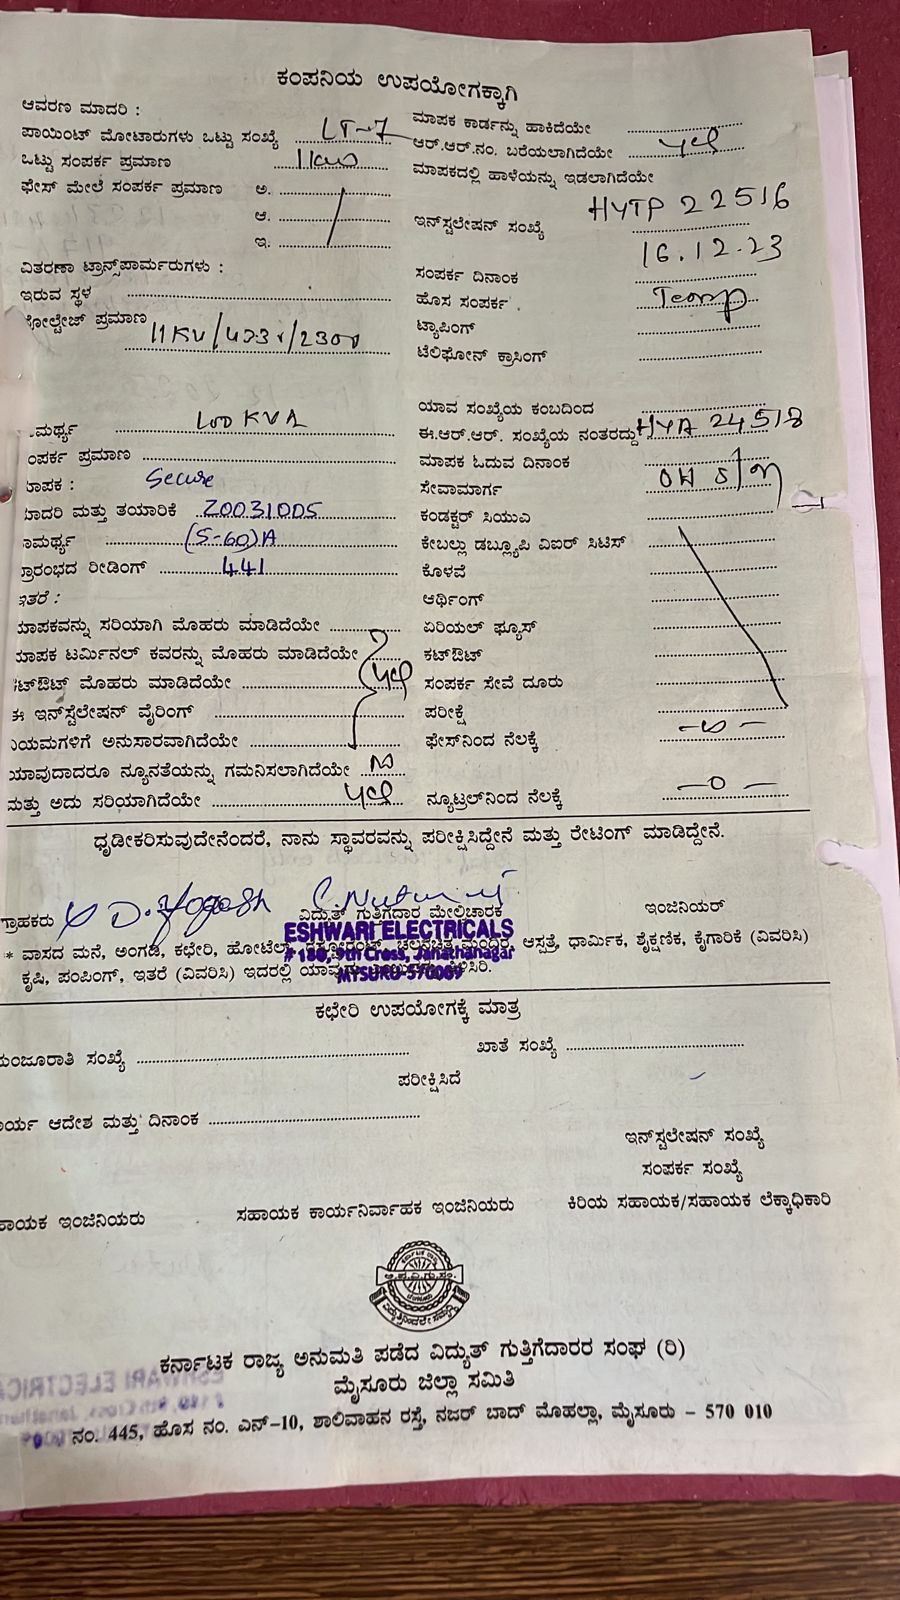 ಕಂಪನಿಯ ಉಪಯೋಗಕ್ಕಾಗಿ
ಆವರಣ ಮಾದರಿ :
ಪಾಯಿಂಟ್ ಮೋಟಾರುಗಳು ಒಟ್ಟು ಸಂಖ್ಯೆ LT-7
ಒಟ್ಟು ಸಂಪರ್ಕ ಪ್ರಮಾಣ 11kw
ಫೇಸ್ ಮೇಲೆ ಸಂಪರ್ಕ ಪ್ರಮಾಣ ಅ.
ಆ.
ಇ.
ವಿತರಣಾ ಟ್ರಾನ್ಸ್‌ಪಾರ್ಮರುಗಳು :
ಇರುವ ಸ್ಥಳ
ಪ್ರಮಾಣ 11KV/
ಮಾಪಕ ಕಾರ್ಡನ್ನು ಹಾಕಿದೆಯೇ
ಆರ್.ಆರ್.ನಂ. ಬರೆಯಲಾಗಿದೆಯೇ yes
ಮಾಪಕದಲ್ಲಿ ಹಾಳೆಯನ್ನು ಇಡಲಾಗಿದೆಯೇ
ಇನ್‌ಸ್ಟಲೇಷನ್ ಸಂಖ್ಯೆ HYTP 22516
ಸಂಪರ್ಕ ದಿನಾಂಕ 16.12.23
ಹೊಸ ಸಂಪರ್ಕ Temp
ಟ್ಯಾಪಿಂಗ್
ಟೆಲಿಫೋನ್ ಕ್ರಾಸಿಂಗ್
100 KVA
ಪ್ರಮಾಣ
Secure
ಮತ್ತು ತಯಾರಿಕೆ Z0031005
(5-60)A
ರೀಡಿಂಗ್ 441
ಸರಿಯಾಗಿ ಮೊಹರು ಮಾಡಿದೆಯೇ
ಟರ್ಮಿನಲ್ ಕವರನ್ನು ಮೊಹರು ಮಾಡಿದೆಯೇ
ಮೊಹರು ಮಾಡಿದೆಯೇ yes
ಈ ಇನ್‌ಸ್ಟೆಲೇಷನ್ ವೈರಿಂಗ್
ಅನುಸಾರವಾಗಿದೆಯೇ
ಯಾವುದಾದರೂ ನ್ಯೂನತೆಯನ್ನು ಗಮನಿಸಲಾಗಿದೆಯೇ No
ಮತ್ತು ಅದು ಸರಿಯಾಗಿದೆಯೇ yes
ಯಾವ ಸಂಖ್ಯೆಯ ಕಂಬದಿಂದ
ಈ.ಆರ್.ಆರ್. ಸಂಖ್ಯೆಯ ನಂತರದ್ದು HYA 24518
ಮಾಪಕ ಓದುವ ದಿನಾಂಕ
ಸೇವಾಮಾರ್ಗ OH
ಕಂಡಕ್ಟರ್ ಸಿಯುಎ
ಕೇಬಲ್ಲು ಡಬ್ಲ್ಯೂಪಿ ವಿಐರ್ ಸಿಟಿಸ್
ಕೊಳವೆ
ಆರ್ಥಿಂಗ್
ಏರಿಯಲ್ ಫ್ಯೂಸ್
ಕಟ್‌ಔಟ್
ಸಂಪರ್ಕ ಸೇವೆ ದೂರು
ಪರೀಕ್ಷೆ
ಫೇಸ್‌ನಿಂದ ನೆಲಕ್ಕೆ
ನ್ಯೂಟ್ರಲ್‌ನಿಂದ ನೆಲಕ್ಕೆ -0-
ಧೃಡೀಕರಿಸುವುದೇನೆಂದರೆ, ನಾನು ಸ್ಥಾವರವನ್ನು ಪರೀಕ್ಷಿಸಿದ್ದೇನೆ ಮತ್ತು ರೇಟಿಂಗ್ ಮಾಡಿದ್ದೇನೆ.
D. Yogesh
ಗ್ರಾಹಕರು ವಿದ್ಯುತ್ ಗುತ್ತಿಗೆದಾರ ಮೇಲ್ವಿಚಾರಕ ಇಂಜಿನಿಯರ್
ESHWARI ELECTRICALS
# 186, 9th Cross, Janathanagar
MYSURU-570009
* ವಾಸದ ಮನೆ, ಅಂಗಡಿ, ಕಛೇರಿ, ಹೋಟೆಲ್, ಚಲನಚಿತ್ರ ಮಂದಿರ, ಆಸ್ಪತ್ರೆ, ಧಾರ್ಮಿಕ, ಶೈಕ್ಷಣಿಕ, ಕೈಗಾರಿಕೆ (ವಿವರಿಸಿ)
ಕೃಷಿ, ಪಂಪಿಂಗ್, ಇತರೆ (ವಿವರಿಸಿ) ಇದರಲ್ಲಿ
ಕಛೇರಿ ಉಪಯೋಗಕ್ಕೆ ಮಾತ್ರ
ಮಂಜೂರಾತಿ ಸಂಖ್ಯೆ ಖಾತೆ ಸಂಖ್ಯೆ
ಪರೀಕ್ಷಿಸಿದೆ
ಆದೇಶ ಮತ್ತು ದಿನಾಂಕ
ಇನ್‌ಸ್ಟಲೇಷನ್ ಸಂಖ್ಯೆ
ಸಂಪರ್ಕ ಸಂಖ್ಯೆ
ಇಂಜಿನಿಯರು ಸಹಾಯಕ ಕಾರ್ಯನಿರ್ವಾಹಕ ಇಂಜಿನಿಯರು ಕಿರಿಯ ಸಹಾಯಕ/ಸಹಾಯಕ ಲೆಕ್ಕಾಧಿಕಾರಿ
ಕರ್ನಾಟಕ ರಾಜ್ಯ ಅನುಮತಿ ಪಡೆದ ವಿದ್ಯುತ್ ಗುತ್ತಿಗೆದಾರರ ಸಂಘ (ರಿ)
ಮೈಸೂರು ಜಿಲ್ಲಾ ಸಮಿತಿ
ನಂ. 445, ಹೊಸ ನಂ. ಎನ್-10, ಶಾಲಿವಾಹನ ರಸ್ತೆ, ನಜರ್ ಬಾದ್ ಮೊಹಲ್ಲಾ, ಮೈಸೂರು - 570 010